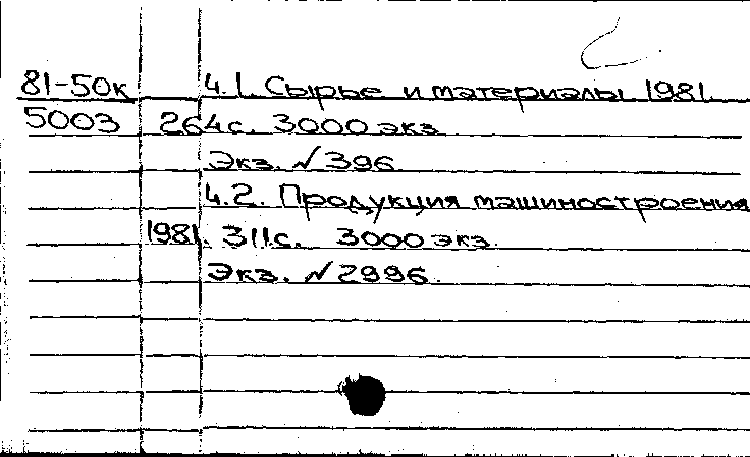 81-50к Ч.1. Сырье и материалы 1981.
5003 264с. 3000 экз.
Экз. №396.
Ч.2. Продукция машиностроения
1981. 311с. 3000 экз.
Экз. №2996.